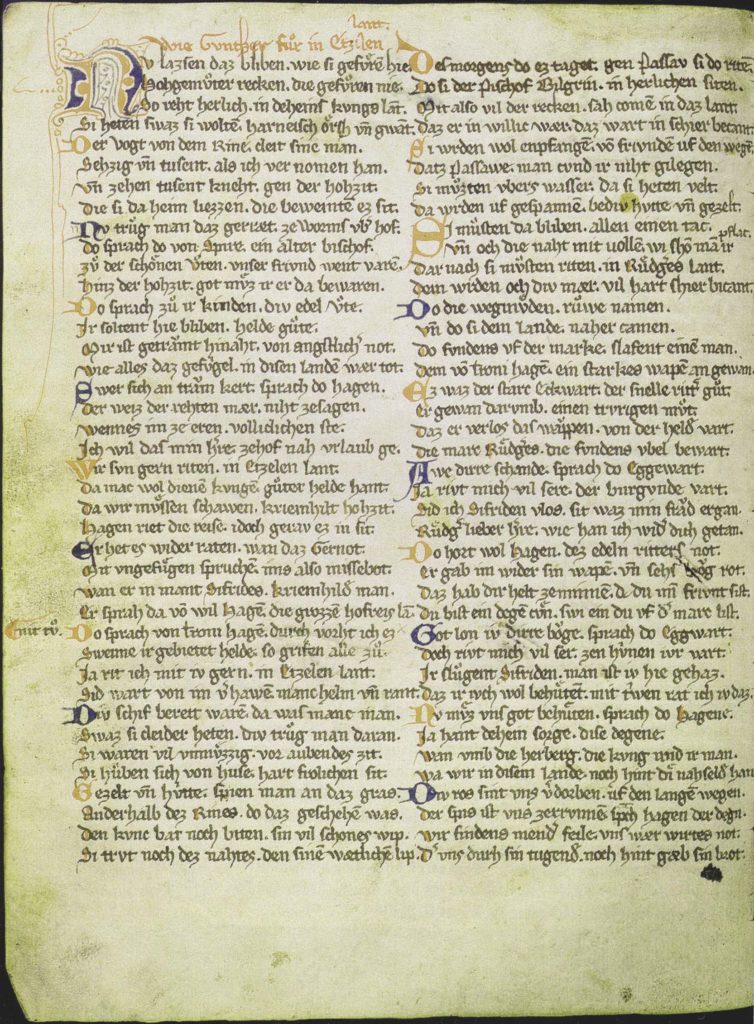 lant.
Wie Gunther fuͦr in Etzilen
Nv lazsen daz bliben. wie si gefuͦrn hie.
Hohgemuͦter recken. die gefuͦren nie.
So reht herlich. in deheins kungs lāt.
Si heten swaz si wolten. harneisch vn̄ gwāt.
Der vogt von dem Rine. cleit sine man.
Sehzig vn̄ tusent. als ich ver nomen han.
Vn̄ zehen tusent kneht. gen der hohzit.
Die si da heim liezzen. die beweinte eʒ sit.
Nv truͦg man daz geræt. ze worms vb̾ hof.
Do sprach do von Spire. ein alter bischof.
Zuͦ der schoͤnen Vͦten. vnser frivnd went varē.
Hinz der hohzit. got muͤz ir er da bewaren.
Do sprach zuͦ ir kinden. div edel Vͦte.
Ir soltent hie bliben. helde guͦte.
Mir ist getrāmt hinaht. von angstlich̾ not.
Wie alles daz gefuͤgel. in disen landē wær tot.
Swer sich an trām kert. sprach do hagen.
Der weiz der rehten mær. niht zesagen.
Wennes im ze eren. vollichen ste.
Ich wil das min hr̄e. zehof nah vrlaub ge.
Wir svn gern riten. in Etzelen lant.
Da mac wol dienē kvnge. guͦter helde hant.
Da wir muͤssen schawen. kriemhilt hohzit.
Hagen riet die reise. idoch gerav ez in sit.
Er het es wider raten. wan daz Gernot.
Mit vngefuͤgen spruchē. ims also missebot.
Wan er in mant Sifrides. kriemhild man.
Er sprah da vō wil Hagē. die grozzē hofreis lā.
Do sprach von troni Hagē. durch vorht ich ez
Gnit tvͦ.
Swenne ir gebietet helde. so grifen alle zuͦ.
Ja rit ich mit iv gern. in Etzelen lant.
Sid wart von im v̾hawē. manc helm vn̄ rant.
Div schif bereit warē. da was manc man.
Swaz si cleider heten. div truͦg man daran.
Si waren vil vnmuͤzzig. vor aubendes zit.
Si huͦben sich von huse. hart frolichen sit.
Gezelt vn̄ huͤtte. spien man an daz gras.
Anderhalb dez Rines. do daz geschehē was.
Den kvnc bat noch biten. sin vil schones wip.
Si trvt noch dez nahtes. den sinē wætlichē lip.
Des morgens do ez taget. gen Passav si do ritē.
Do si der Pischof Bilgrin. in herlichen siten.
Mit also vil der recken. sah comē in daz lant.
Daz er in willic wær. daz wart in schier becant.
Si wrden wol enpfangē. vō frivndē vf den wegē.
Datz Passawe. man cvnd ir niht gilegen.
Si muͤzten vbers wasser. da si heten velt.
Da wrden vf gespannē. bediv huͤtte vn̄ gezelt.
Si muͦsten da bliben. allen einen tac.
pflac.
Vn̄ och die naht mit vollē wi schō mā ir
Dar nach si muͦsten riten. in Ruͤdgers lant.
Dem wrden och div mær. vil hart schier bicant.
Do die wegmuͤden. ruͤwe namen.
Vn̄ do si dem lande. naher camen.
Do fvndens vf der marke. slafent einē man.
Dem vō troni hagē. ein starkes wapē an gewan.
Ez waz der starc Eckwart. der snelle rit̾ guͦt.
Er gewan darvmb. einen trvrigen muͦt.
Daz er verlos das wappen. von der held vart.
Die marc Ruͤdgers. die fvndens vbel bewart.
Awe dirre schande. sprach do Eggewart.
Ja rivt mich vil sere. der burgunde vart.
Sid ich Sifriden vlos. sit waz min frād ergan.
Ruͤdg̾ lieber hr̄e. wie han ich wid̾ dich getan.
Do hort wol Hagen. dez edeln ritters not.
Er gab im wider sin wapē. vn̄ sehs bog rot.
Daz hab dir helt ze minnē. d̾ du min frivnt sist.
Du bist ein degē cvͤn. swi ein du vf d̾ marc list.
Got lon iv dirre boͤge. sprach do Eggwart.
Doch rivt mich vil ser. zen hvnen iwr vart.
Ir slugent Sifriden. man ist iv hie gehaz.
Daz ir ivch wol behuͤtēt. mit triwen rat ich iv daz.
Nv muͤz vns got behuͤten. sprach do Hagene.
Ja hant dehein sorge. dise degene.
Wan vmb die herberg. die kvng vnd ir man.
Wa wir in disem lande. noch hint di nahseld han.
Div ros sint vns v̾dorben. vf den langē wegen.
Der spis ist vns zerrvnnē. sp̄ch hagen der degn.
Wir findens niend̾ feile. vns wær wirtes not.
D̾ vns durh sin tugend̾. noch hint gæb sin brot.